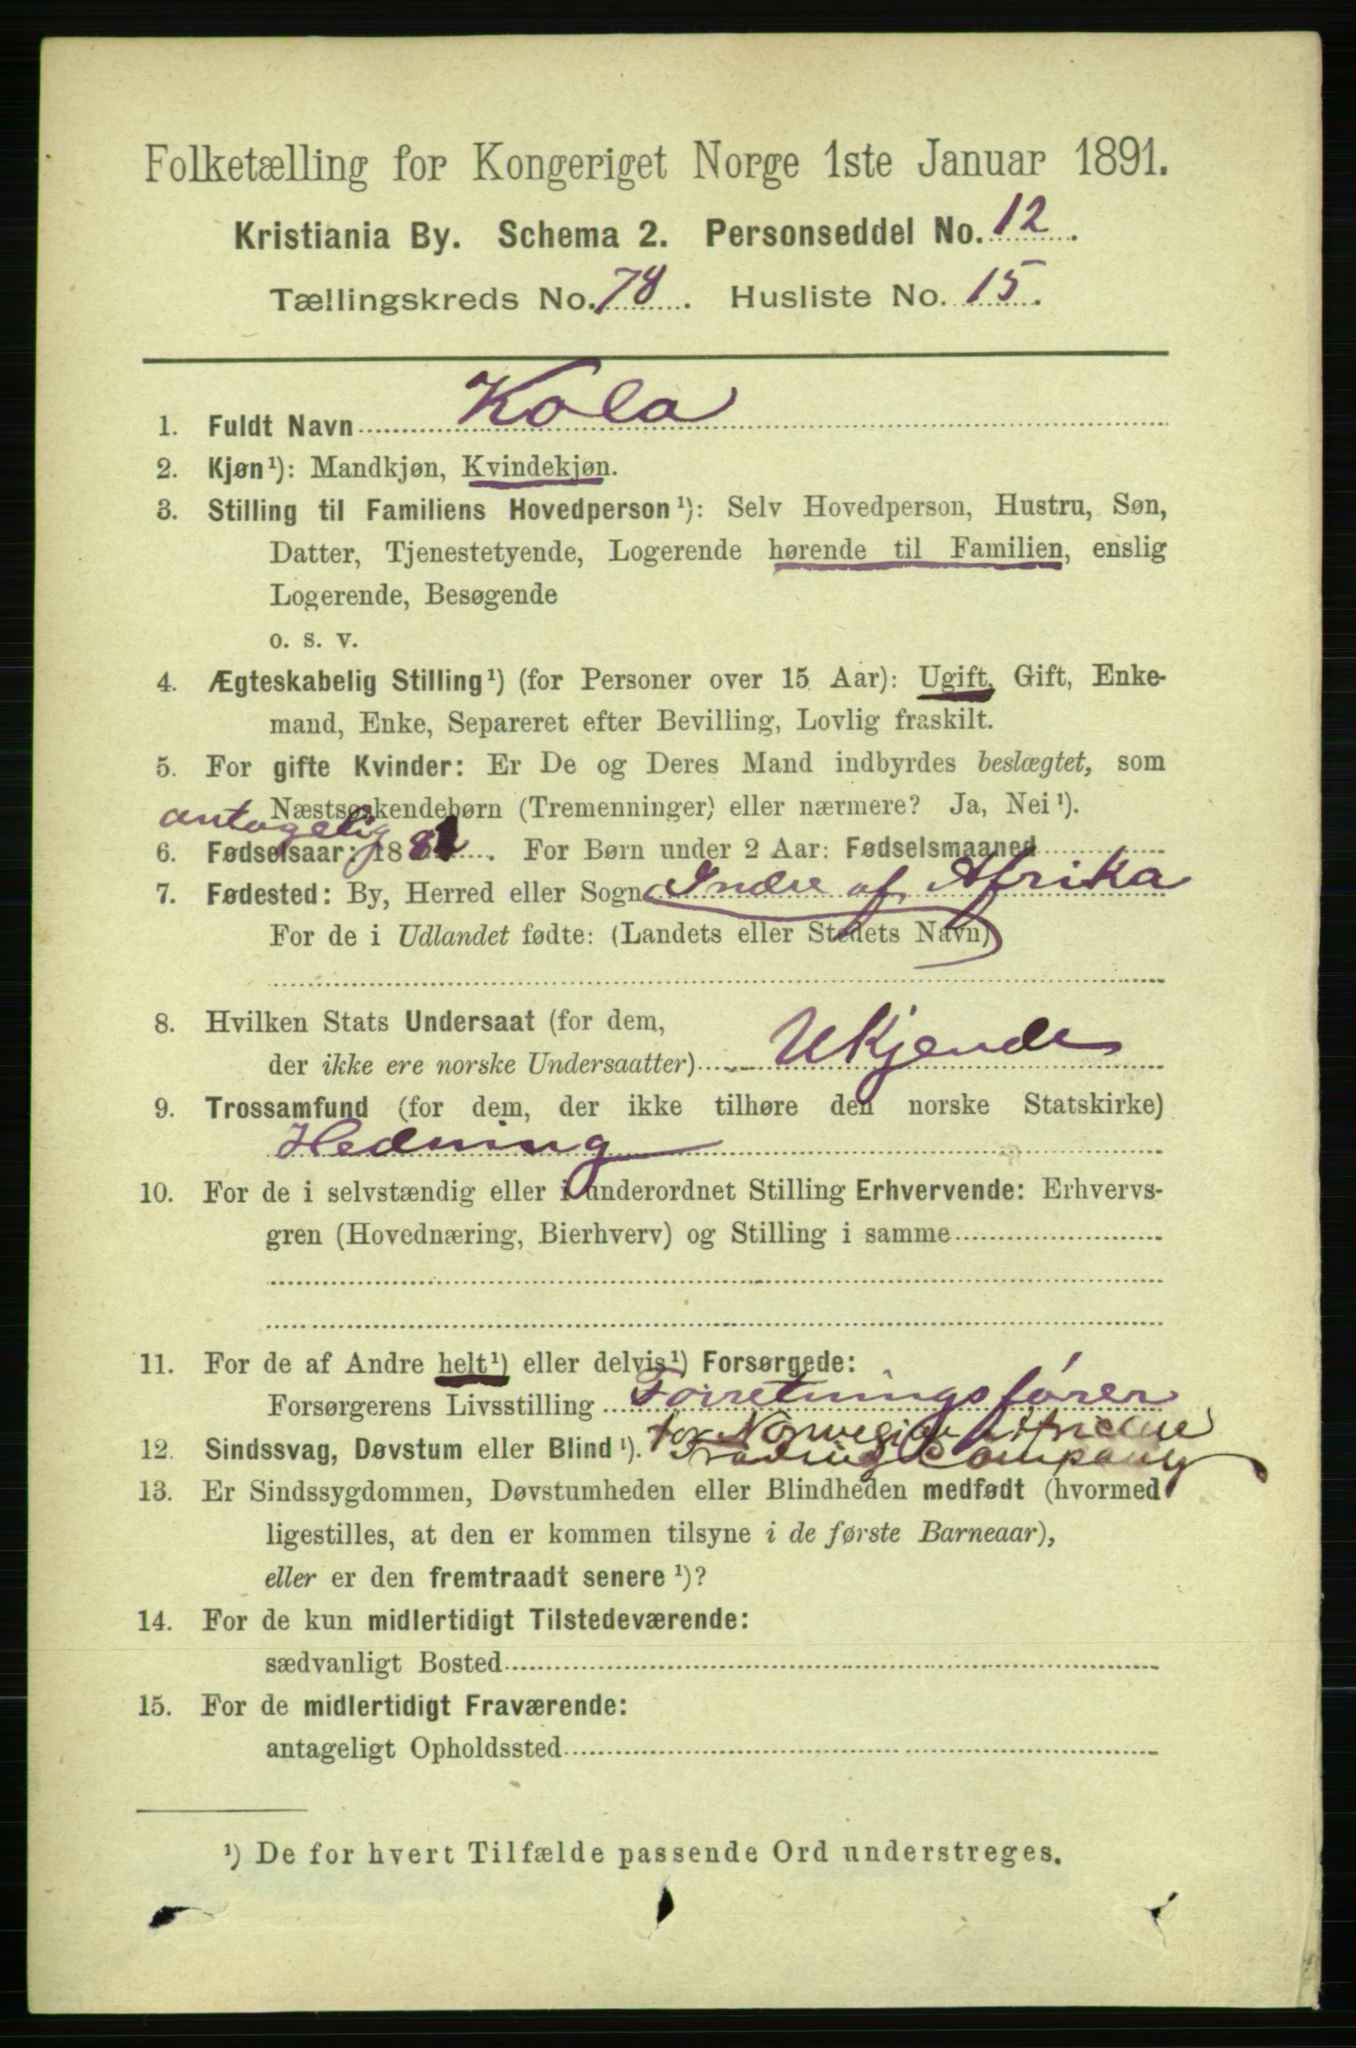 Folketælling for Kongeriget Norge 1ste Januar 1891.
Kristiania By. Schema 2. Personseddel No. 12.
Tællingskreds No. 78. Husliste No. 15.
1. Fuldt Navn Kola
2. Kjøn¹): Mandkjøn, Kvindekjøn.
3. Stilling til Familiens Hovedperson¹): Selv Hovedperson, Hustru, Søn,
Datter, Tjenestetyende, Logerende hørende til Familien, enslig
Logerende, Besøgende
o. s. v.
4. Ægteskabelig Stilling¹) (for Personer over 15 Aar): Ugift, Gift, Enke-
mand, Enke, Separeret efter Bevilling, Lovlig fraskilt.
5. For gifte Kvinder: Er De og Deres Mand indbyrdes beslægtet, som
Næstsøskendebørn (Tremenninger) eller nærmere? Ja, Nei¹).
antagelig
6. Fødselsaar: 1881. For Børn under 2 Aar: Fødselsmaaned
7. Fødested: By, Herred eller Sogn Indre af Afrika
For de i Udlandet fødte: (Landets eller Stedets Navn)
8. Hvilken Stats Undersaat (for dem,
der ikke ere norske Undersaatter) Ukjende
9. Trossamfund (for dem, der ikke tilhøre den norske Statskirke)
Hedning
10. For de i selvstændig eller i underordnet Stilling Erhvervende: Erhvervs-
gren (Hovednæring, Bierhverv) og Stilling i samme
11. For de af Andre helt¹) eller delvis¹) Forsørgede:
Forsørgerens Livsstilling Forretningsfører
12. Sindssvag, Døvstum eller Blind¹). for Norwegian
Trading Company
13. Er Sindssygdommen, Døvstumheden eller Blindheden medfødt (hvormed
ligestilles, at den er kommen tilsyne i de første Barneaar),
eller er den fremtraadt senere¹)?
14. For de kun midlertidigt Tilstedeværende:
sædvanligt Bosted
15. For de midlertidigt Fraværende:
antageligt Opholdssted
¹) De for hvert Tilfælde passende Ord understreges.